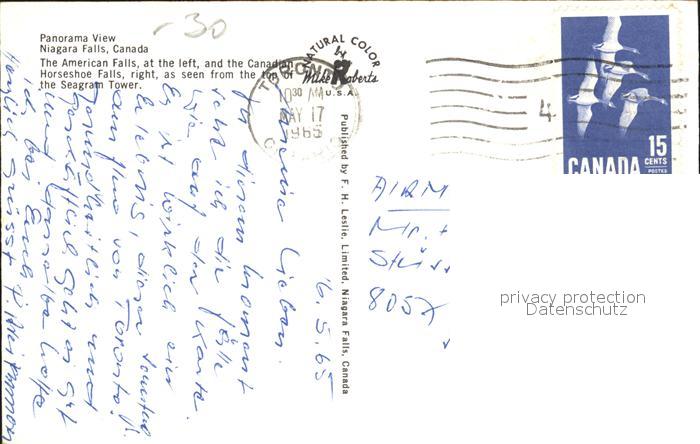 -30
Panorama View
Niagara Falls, Canada
The American Falls, at the left, and the Canadian
Horseshoe Falls, right, as seen from the top of
the Seagram Tower.
NATURAL COLOR
Mike Roberts
U.S.A.
TORONTO
10 30 AM
MAY 17
1965
4
15
CENTS
CANADA
POSTES
Published by F. H. Leslie, Limited, Niagara Falls, Canada
16.5.65
Meine Lieben.
In diesem Moment
sehe ich die Fälle
wie auf der Karte.
Es ist wirklich ein
Erlebnis, dieser
zum Flug von Toronto.
und
Geht es gut
und
ich bei Euch
Herzlich grüsst
AIRM
Mr. +
805
privacy protection
Datenschutz